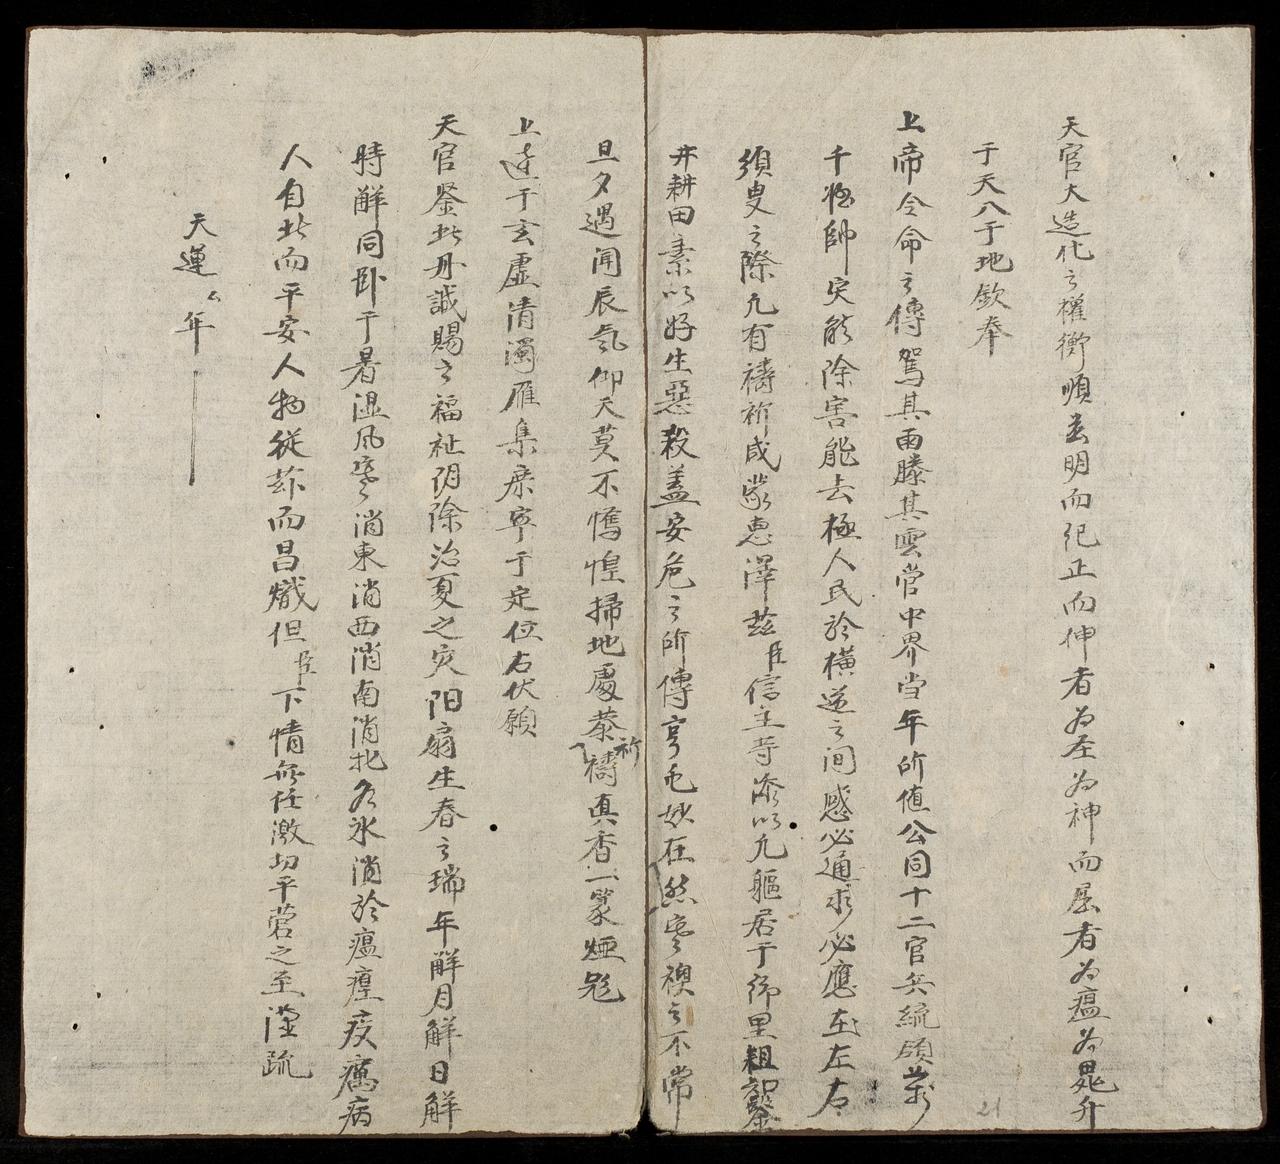 天官大造化之權衡順玄明而紀正而伸者為圣為神而屈者為瘟為鬼升
于天八于地欽奉
上帝令命之傳駕其雨滕其雲管中界当年所值公同十二官兵統領萬
千将帥灾能除害能去極人民於橫逆之间感必通求必應在左右
須臾之際凢有禱祈咸蒙恵澤茲臣信主等添以凢軀居于鄉里粗鑿
井耕田素以好生惡殺盖安危之所傳亨屯妙在然寒襖之不常
旦夕遇闻辰氣仰天莫不憹惶掃地慶恭祈禱真香一篆煙起
上達于玄虛清濁雁集康寧于定位右伏願
天官鉴此丹誠賜之福祉阴除治夏之灾阳扇生春之瑞年觧月觧日觧
時觧同卧于暑湿风寒消東消西消南消北各氷消於瘟瘴疫癘病
人自此而平安人物従茲而昌熾但臣下情無任激切平營之至謹疏
天運厶年
21